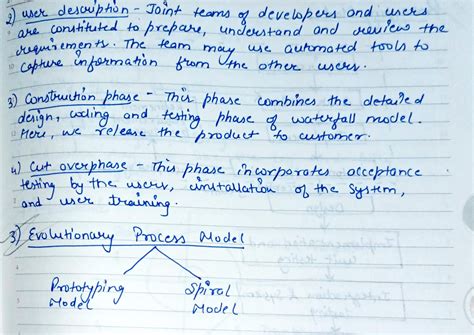 2) User description - Joint teams of developers and users
are constituted to prepare, understand and review the
requirements. The team may use automated tools to
capture information from the other users.
3) Construction phase - This phase combines the detailed
design, coding and testing phase of waterfall model.
Here, we release the product to customer.
4) Cut over phase - This phase incorporates acceptance
testing by the users, installation of the system,
and user training.
3) Evolutionary Process Model
Prototyping Spiral
Model Model